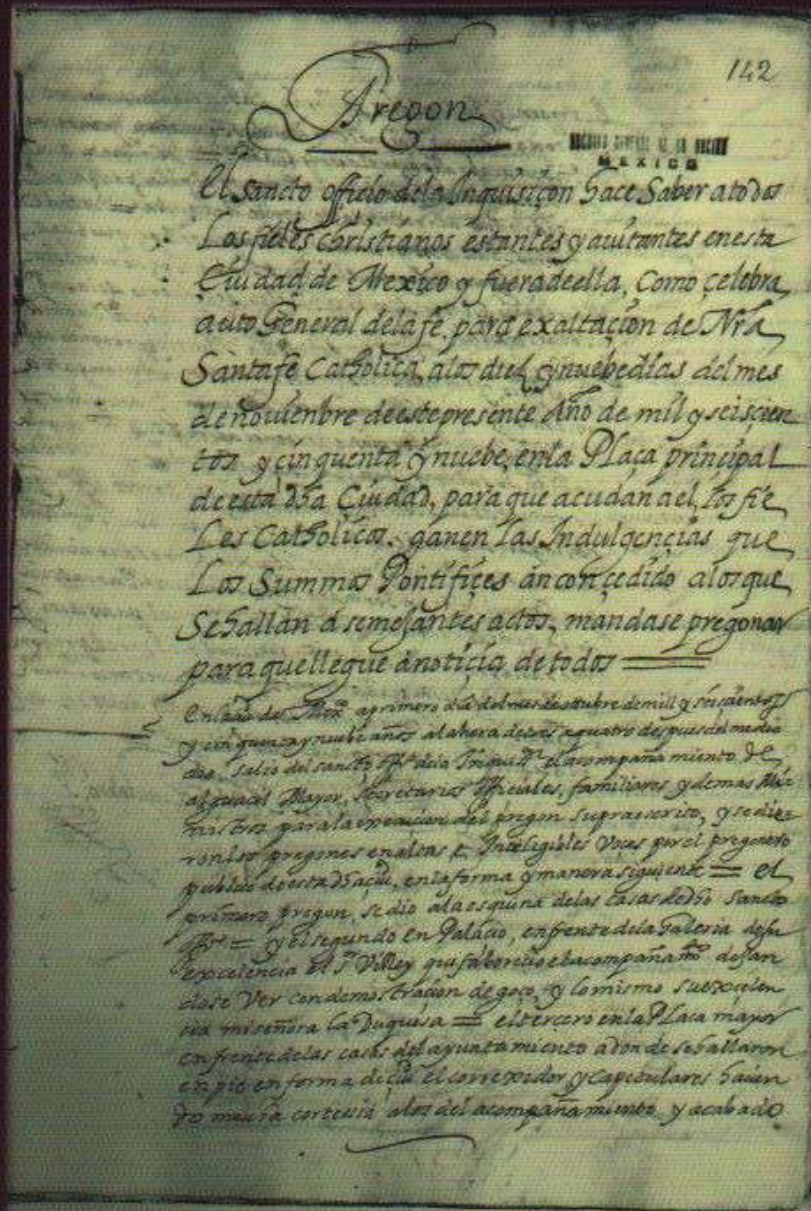 142
Pregon
ARCHIVO GENERAL DE LA NACION
MEXICO
El Sancto officio dela Inquisiçon haçe Saber atodos
Los fieles christianos estantes y auitantes enesta
Çiudad de Mexico y fueradeella, Como çelebra
auto General delafe, para exaltaçion de Nrã
Santafe Catholica, alos diez y nuebe dias del mes
de nouienbre deestepresente Año de mil y seiscien
tos y çinquenta y nuebe, enla Plaça prinçipal
deesta dha Çiudad, para que acudan ael, los fie
Les Catholicos, ganen Las Indulgençias que
Los Summos Pontifiçes an conçedido alos que
Sehallan a semejantes actos, mandase pregonar
para quellegue anotiçia de todos
En la çiud de Mexco a primero dia del mes de otubre demill y seiscientos
y cinquenta y nuebe años al ahora de tres a quatro despues del medio
dia, salio del sancto offo dela Inquissn el acompañamiento de
alguacil Mayor, Secretarios offiçiales, familiares y demas Mi
nistros para la execucion del pregon supraescrito, y se die
ron los pregones en altas e Inteligibles Voces por el pregonero
publico de esta dha çiud, en la forma y manera siguiente = el
primero pregon, se dio ala esquina delas casas dedho Sancto
offo = y el segundo En Palacio, enfrente dela Galeria desu
excelencia el sr Virrey que faborecio el acompañamto dejan
dose Ver con demostracion de goço, y lo mismo su excelen
cia mi señora la Duquesa = el tercero en la Plaça mayor
en frente delas casas del ayuntamiento adonde se hallaron
en pie en forma de çiud el corregidor y capitulares hacien
do mucha cortesia alos del acompañamiento y acabado